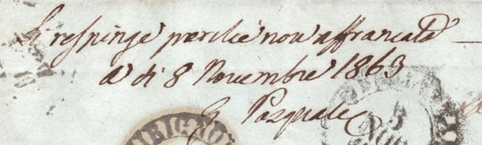 Si respinge perchè non affrancato
a di 8 Novembre 1863
Pasquale
5
NO